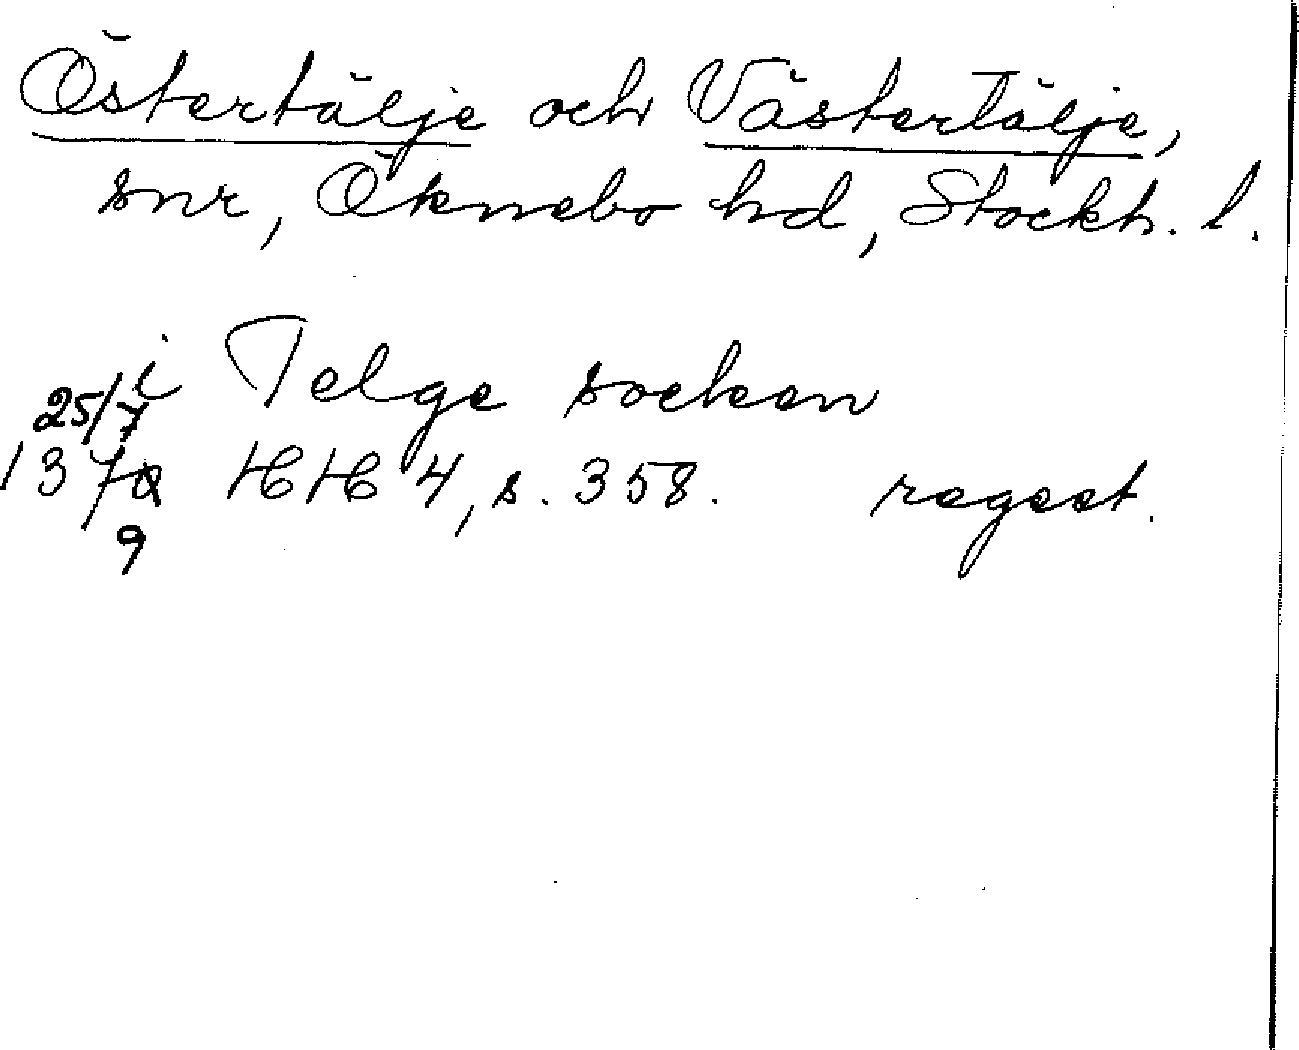 Östertälje och Västertälje,
snr, Öknebo hd, Stockh. l.
i Telge socken
25/7
1370 HH 4, s. 358. regest.
9